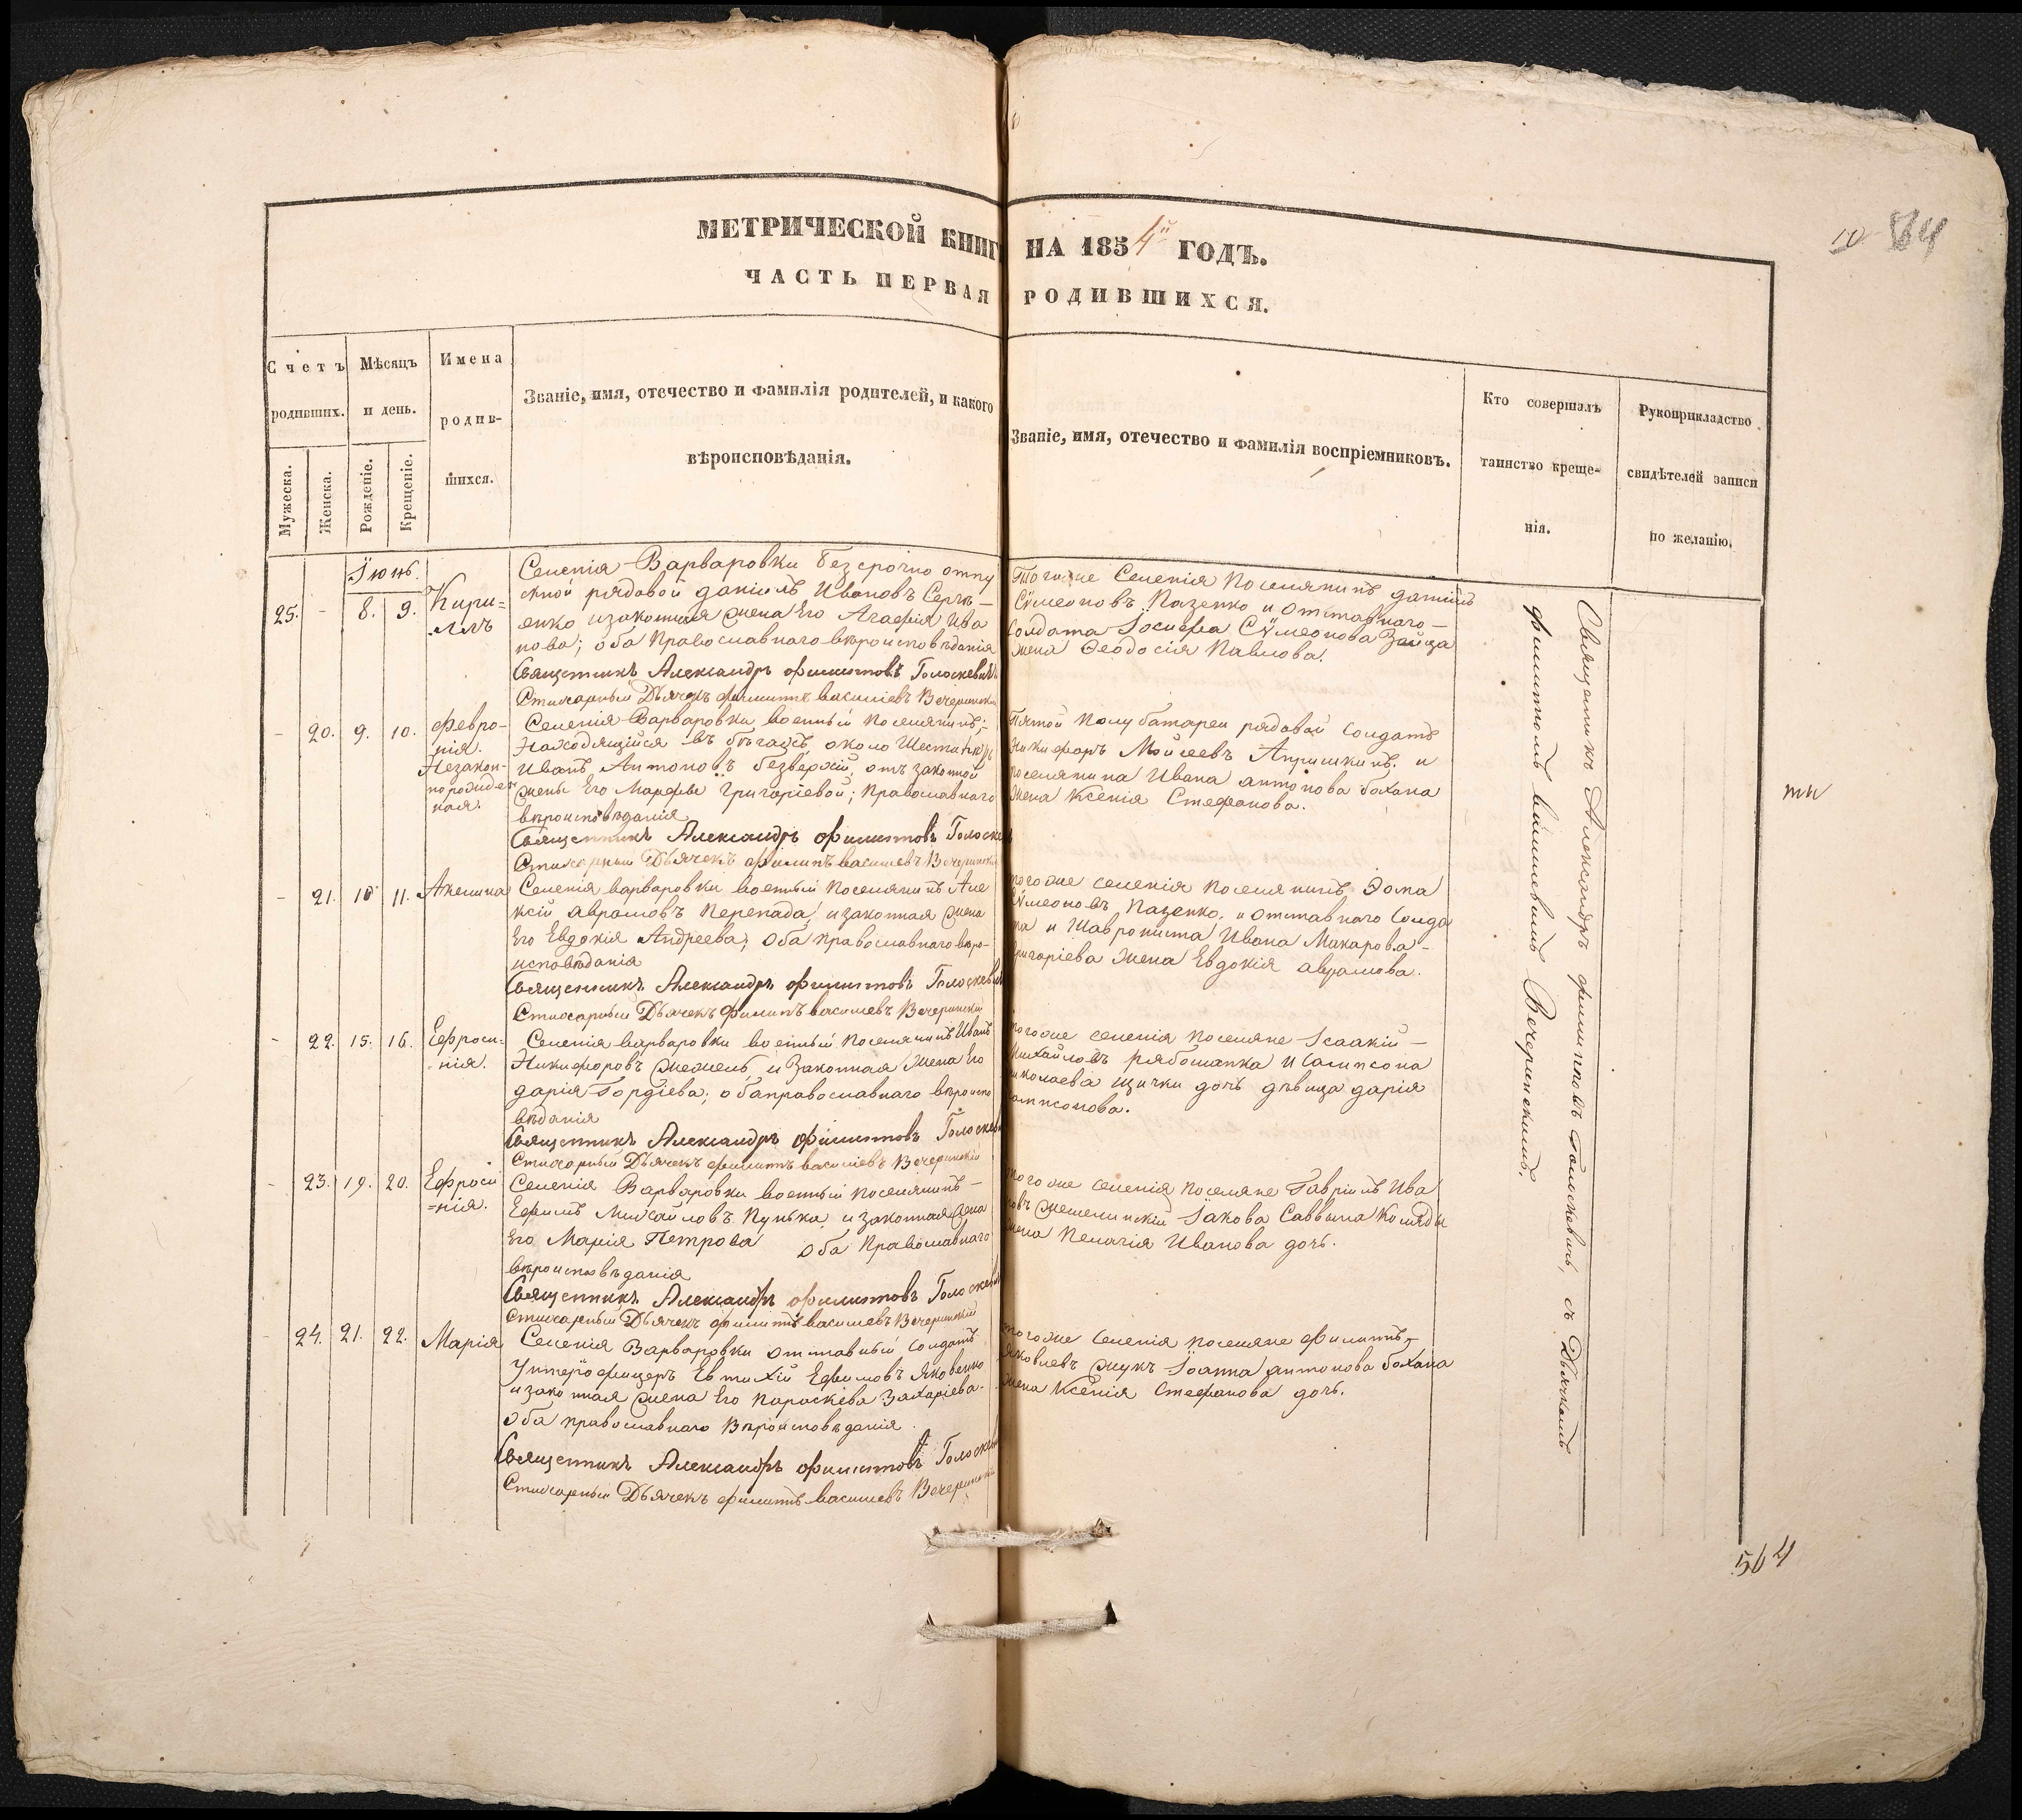 МЕТРИЧЕСКОЙ КНИГ НА 1854й ГОДЪ.
ЧАСТЬ ПЕРВАЯ РОДИВШИХСЯ.
10 84
Счетъ родивших.
Мужеска.
Женска.
Мѣсяцъ и день.
Рожденіе.
Крещеніе.
Имена родив-
шихся.
Званіе, имя, отечество и фамилія родителей, и какого
вѣроисповѣданія.
Званіе, имя, отечество и фамилія воспріемниковъ.
Кто совершалъ
таинство креще-
нія.
Рукоприкладство
свидѣтелей записи
по желанію.
Іюнь.
25. - 8. 9. Кири=
ллъ
Селенія Варваровки безсрочно отпу
скной рядовой Даніилъ Ивановъ
енко и законная жена Его Агафія Ива
нова; оба Православнаго вѣроисповѣданія
Священникъ Александръ Филиповъ Голоскевичъ
Стихарный Дьячекъ Филипъ Василіевъ Вечеринскій
Тогоже Селенія Поселянинъ Даніилъ
Сѵмеоновъ Пазенко и отставнаго
Солдата Іосифа Сѵмеонова Зайца
жена Ѳеодосія Павлова.
- 20. 9. 10. Февро-
нія.
Незакон-
норожден
ная.
Селенія Варваровки военный поселянинъ;
Находящійся въ бѣгахъ около Шести
Иванъ Антоновъ Безверхій, отъ законной
жены Его Марфы Григоріевой; Православнаго
вѣроисповѣданія
Священникъ Александръ Филиповъ
Стихарный Дьячекъ Филипъ Василіевъ Вечеринскій
Пятой Полубатареи рядовой Солдатъ
Никифоръ Мойсеевъ Апришкинъ. и
поселянина Ивана Антонова Бохана
жена Ксенія Стефанова.
- 21. 10 11. Акелина
Селенія Варваровки военный Поселянинъ Але
ксій Аврамовъ Перепада, и законная жена
Его Евдокія Андреева; Оба Православнаго вѣро-
исповѣданія
Священникъ Александръ Филиповъ
Стихарный Дьячекъ Филипъ Василіевъ Вечеринскій
тогоже селенія Поселянинъ Ѳома
Сѵмеоновъ Пазенко. и отставнаго Солда
та и Ивана Макарова
Григоріева жена Евдокія Аврамова.
- 22. 15. 16. Ефроси=
нія.
Селенія Варваровки военный Поселянинъ Иванъ
Никифоровъ и законная жена Его
Дарія Гордіева; оба православнаго вѣроиспо
вѣданія
Священникъ Александръ Филиповъ
Стихарный Дьячекъ Филипъ Василіевъ Вечеринскій
тогоже селенія Поселяне Ісаакій
Михайловъ Рябошапка и Сампсона
Николаева дочь дѣвица Дарія
Сампсонова.
- 23. 19. 20. Ефроси
=нія.
Селенія Варваровки военный Поселянинъ
Ефимъ Михайловъ Пунька, и законная жена
Его Марія Петрова Оба Православнаго
вѣроисповѣданія
Священникъ Александръ Филиповъ
Стихарный Дьячекъ Филипъ Василіевъ Вечеринскій
тогоже селенія Поселяне Гавріилъ Ива
новъ Іакова Саввина Коляды
жена Пелагія Иванова дочь.
24. 21. 22. Марія
Селенія Варваровки отставный Солдатъ
Унтеръ офицеръ Евтихій Ефимовъ Яковенко
и законная жена Его Параскева Захаріева.
Оба православнаго вѣроисповѣданія
Священникъ Александръ Филиповъ
Стихарный Дьячекъ Филипъ Василіевъ
тогоже Селенія поселяне Филипъ
Яковлевъ Жукъ Іоанна Антонова Бохана
жена Ксенія Стефанова дочь.
Священникъ Александръ Филиповъ Голоскевичь, съ Дьячкомъ
Филипомъ Василіевымъ Вечеринскимъ.
564